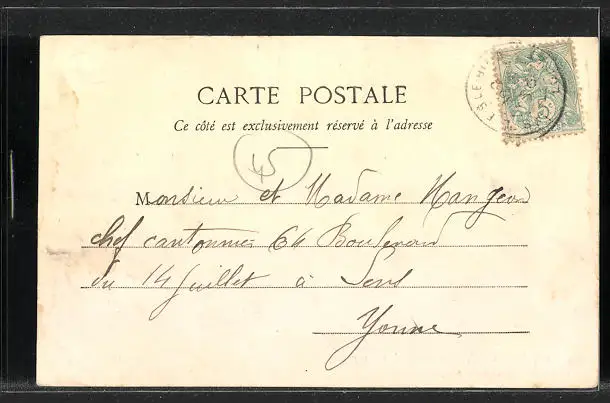 CARTE POSTALE
Ce côté est exclusivement réservé à l'adresse
45
Monsieur et Madame Mangeon
chef cantonnier 64 Boulevard
du 14 Juillet à Sens
Yonne
5